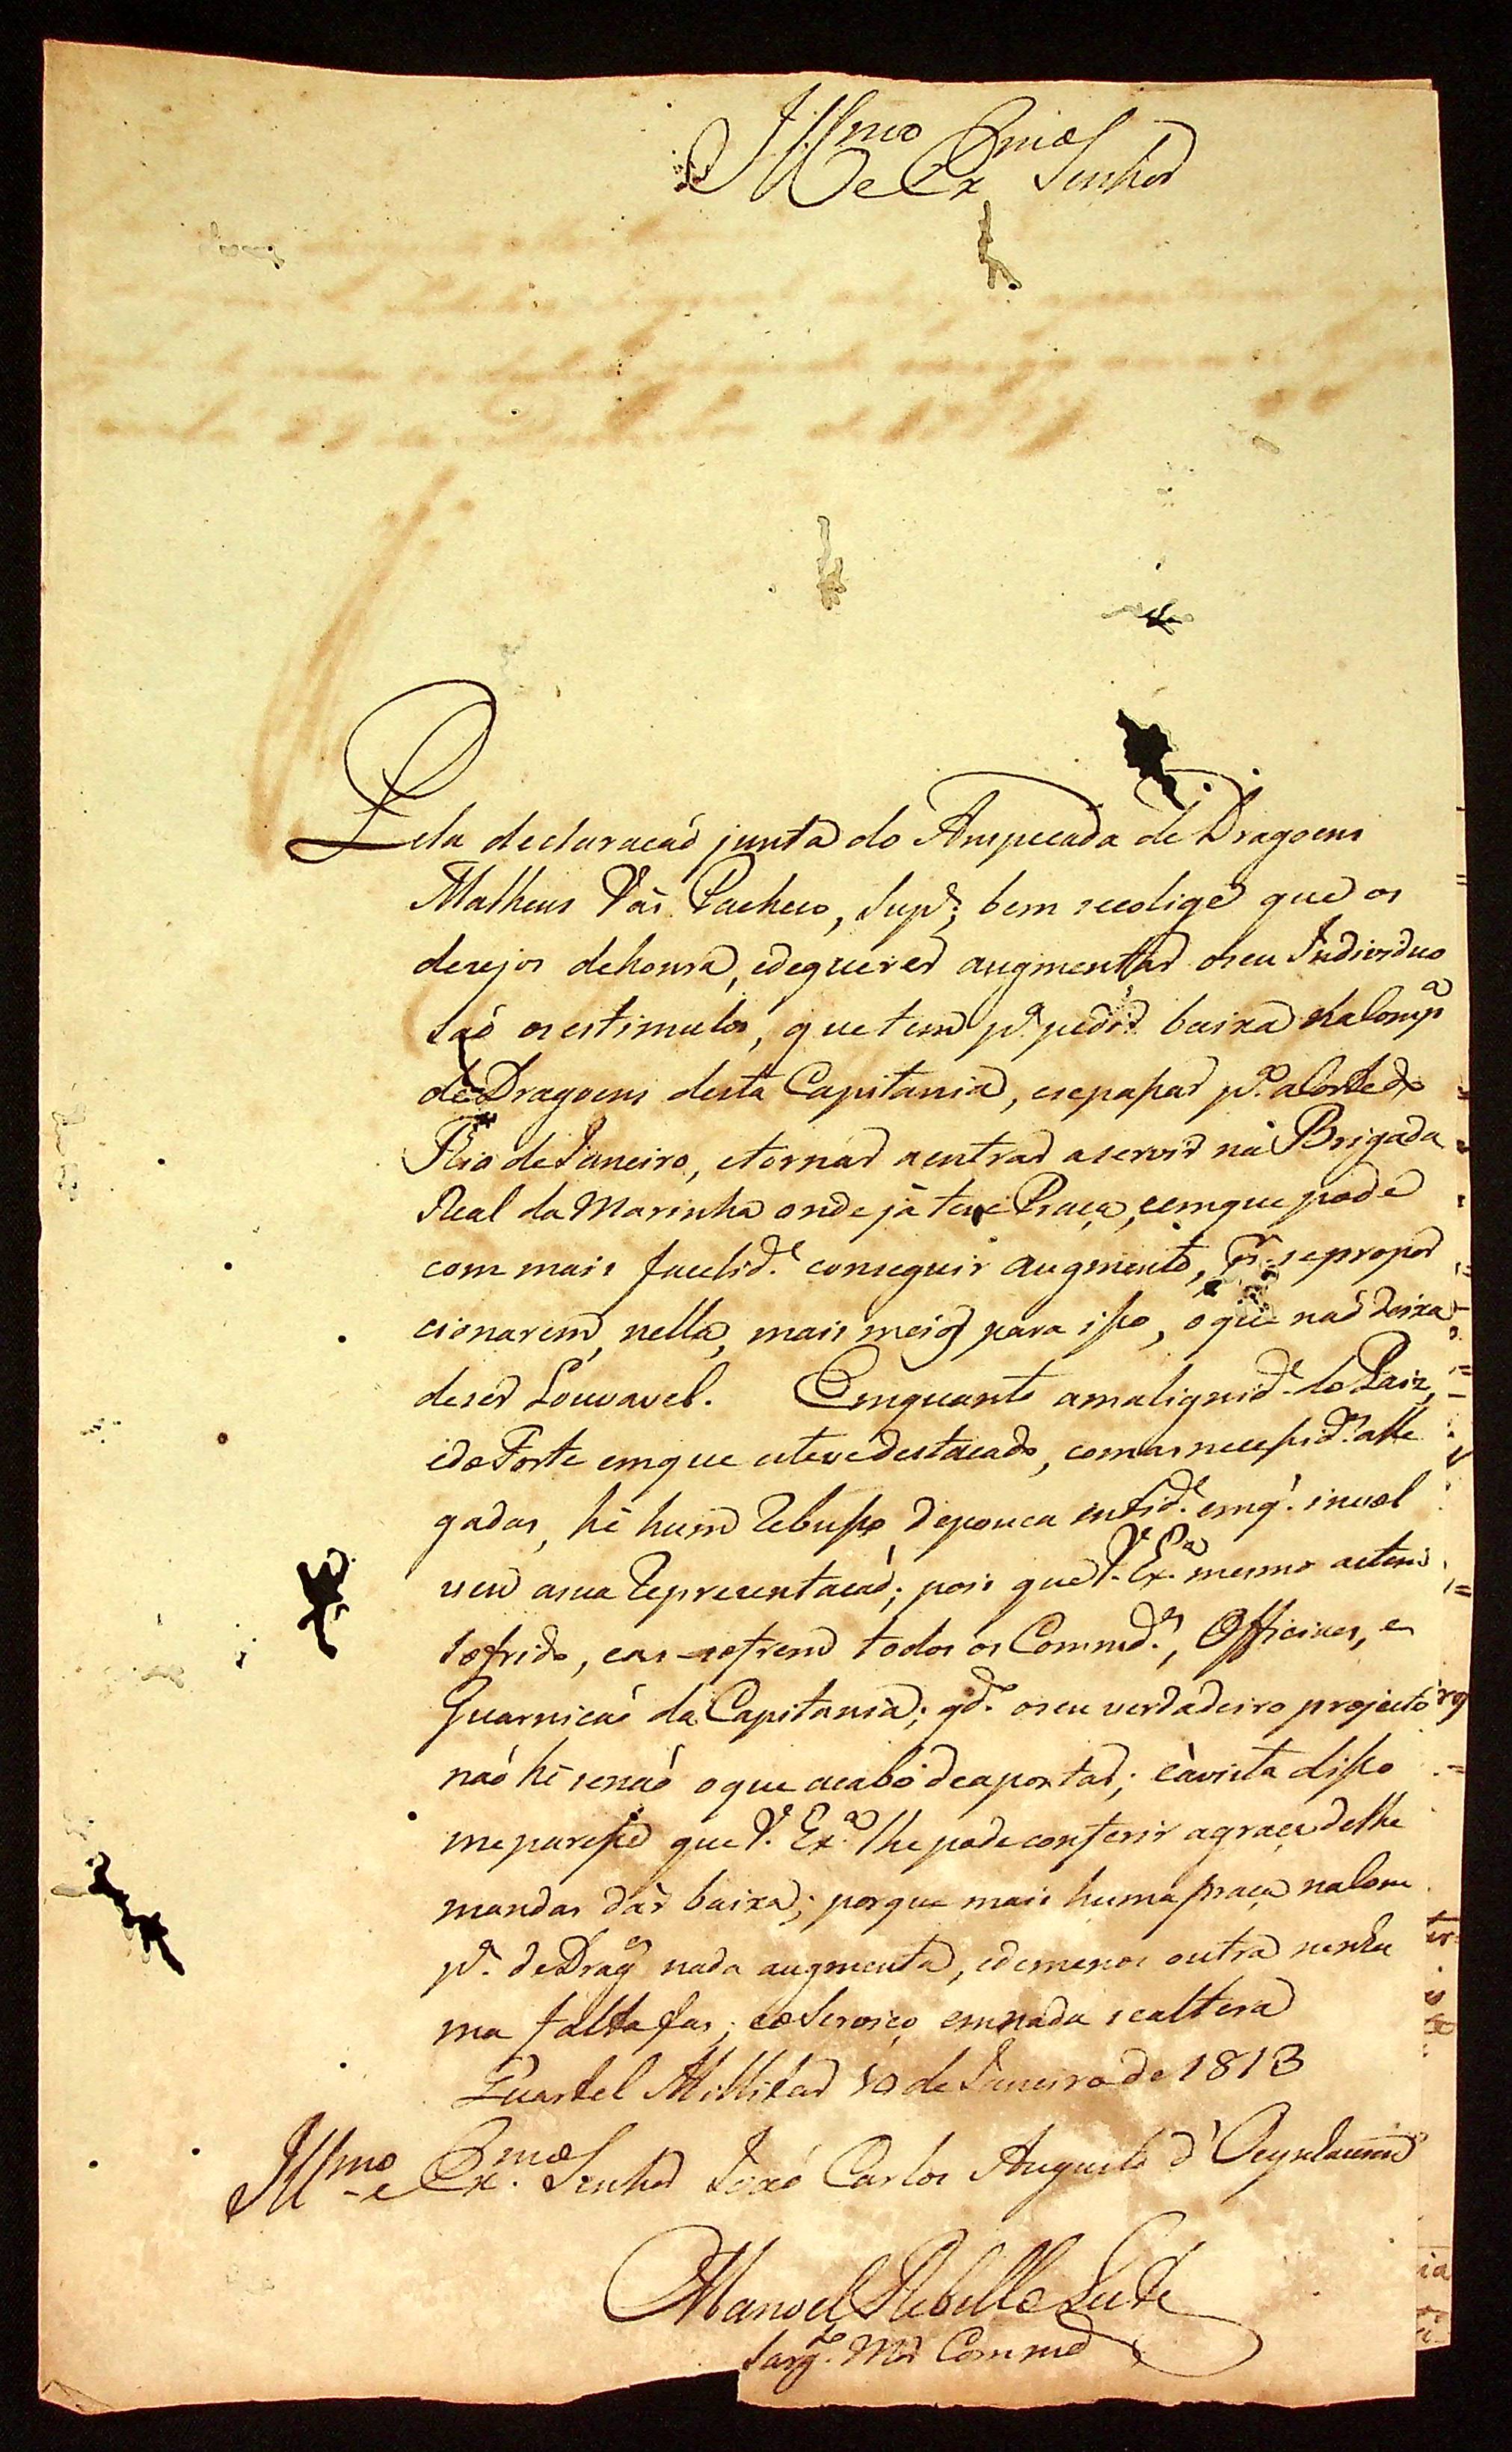 Ill.mo e Ex.mo Senhor
Pela declaracaó junta do Anspecada de Dragoens
Matheus Vás Pacheco, sup.e; bem secolige que os
desejos dehonra, edequerer augmentar oseu Individuo
saó osestimulos, quetem p.a pedir baixa naComp.a
de Dragoens desta Capitania, esepassar p.a aCorte do
Rio deJaneiro, etornar aentrar aservir na Brigada
Real da Marinha onde já teve Praça, eemque pode
com mais facelid.e conseguir augmento, p.r sepropor
cionarem, nella, mais meios para isso, oque naó deixa
deser Louvavel. Emquanto amalignid.e do Paiz,
edoForte emque estevedestacado, comasnecessid.es alle
gadas, hé hum Rebusso depouca entid.e emq.' invol
veu asua Representacaó; pois queV. Ex.a mesmo astem
sofrido, eas sofrem todos os Commd.es, Officiaes, e
Guarnicaó da Capitania; qd.o oseu verdadeiro projecto
naó hé senaó oque acabo deapontar; eávista disso
meparesse que V. Ex.a lhe podeconferir agraça delhe
mandar dár baixa; porque mais huma praça naCom
p.a deDrag.es nada augmenta, edemenos outra nenhu
ma falta fas; eoServiço emnada sealtera
Quartel Millitar 10 deJaneiro de 1813
Ill.mo e Ex.mo Senhor Joaó Carlos Augusto d'Oeynhausen
Manoel Rebello Leite
Sarg.to Mór Commd.e